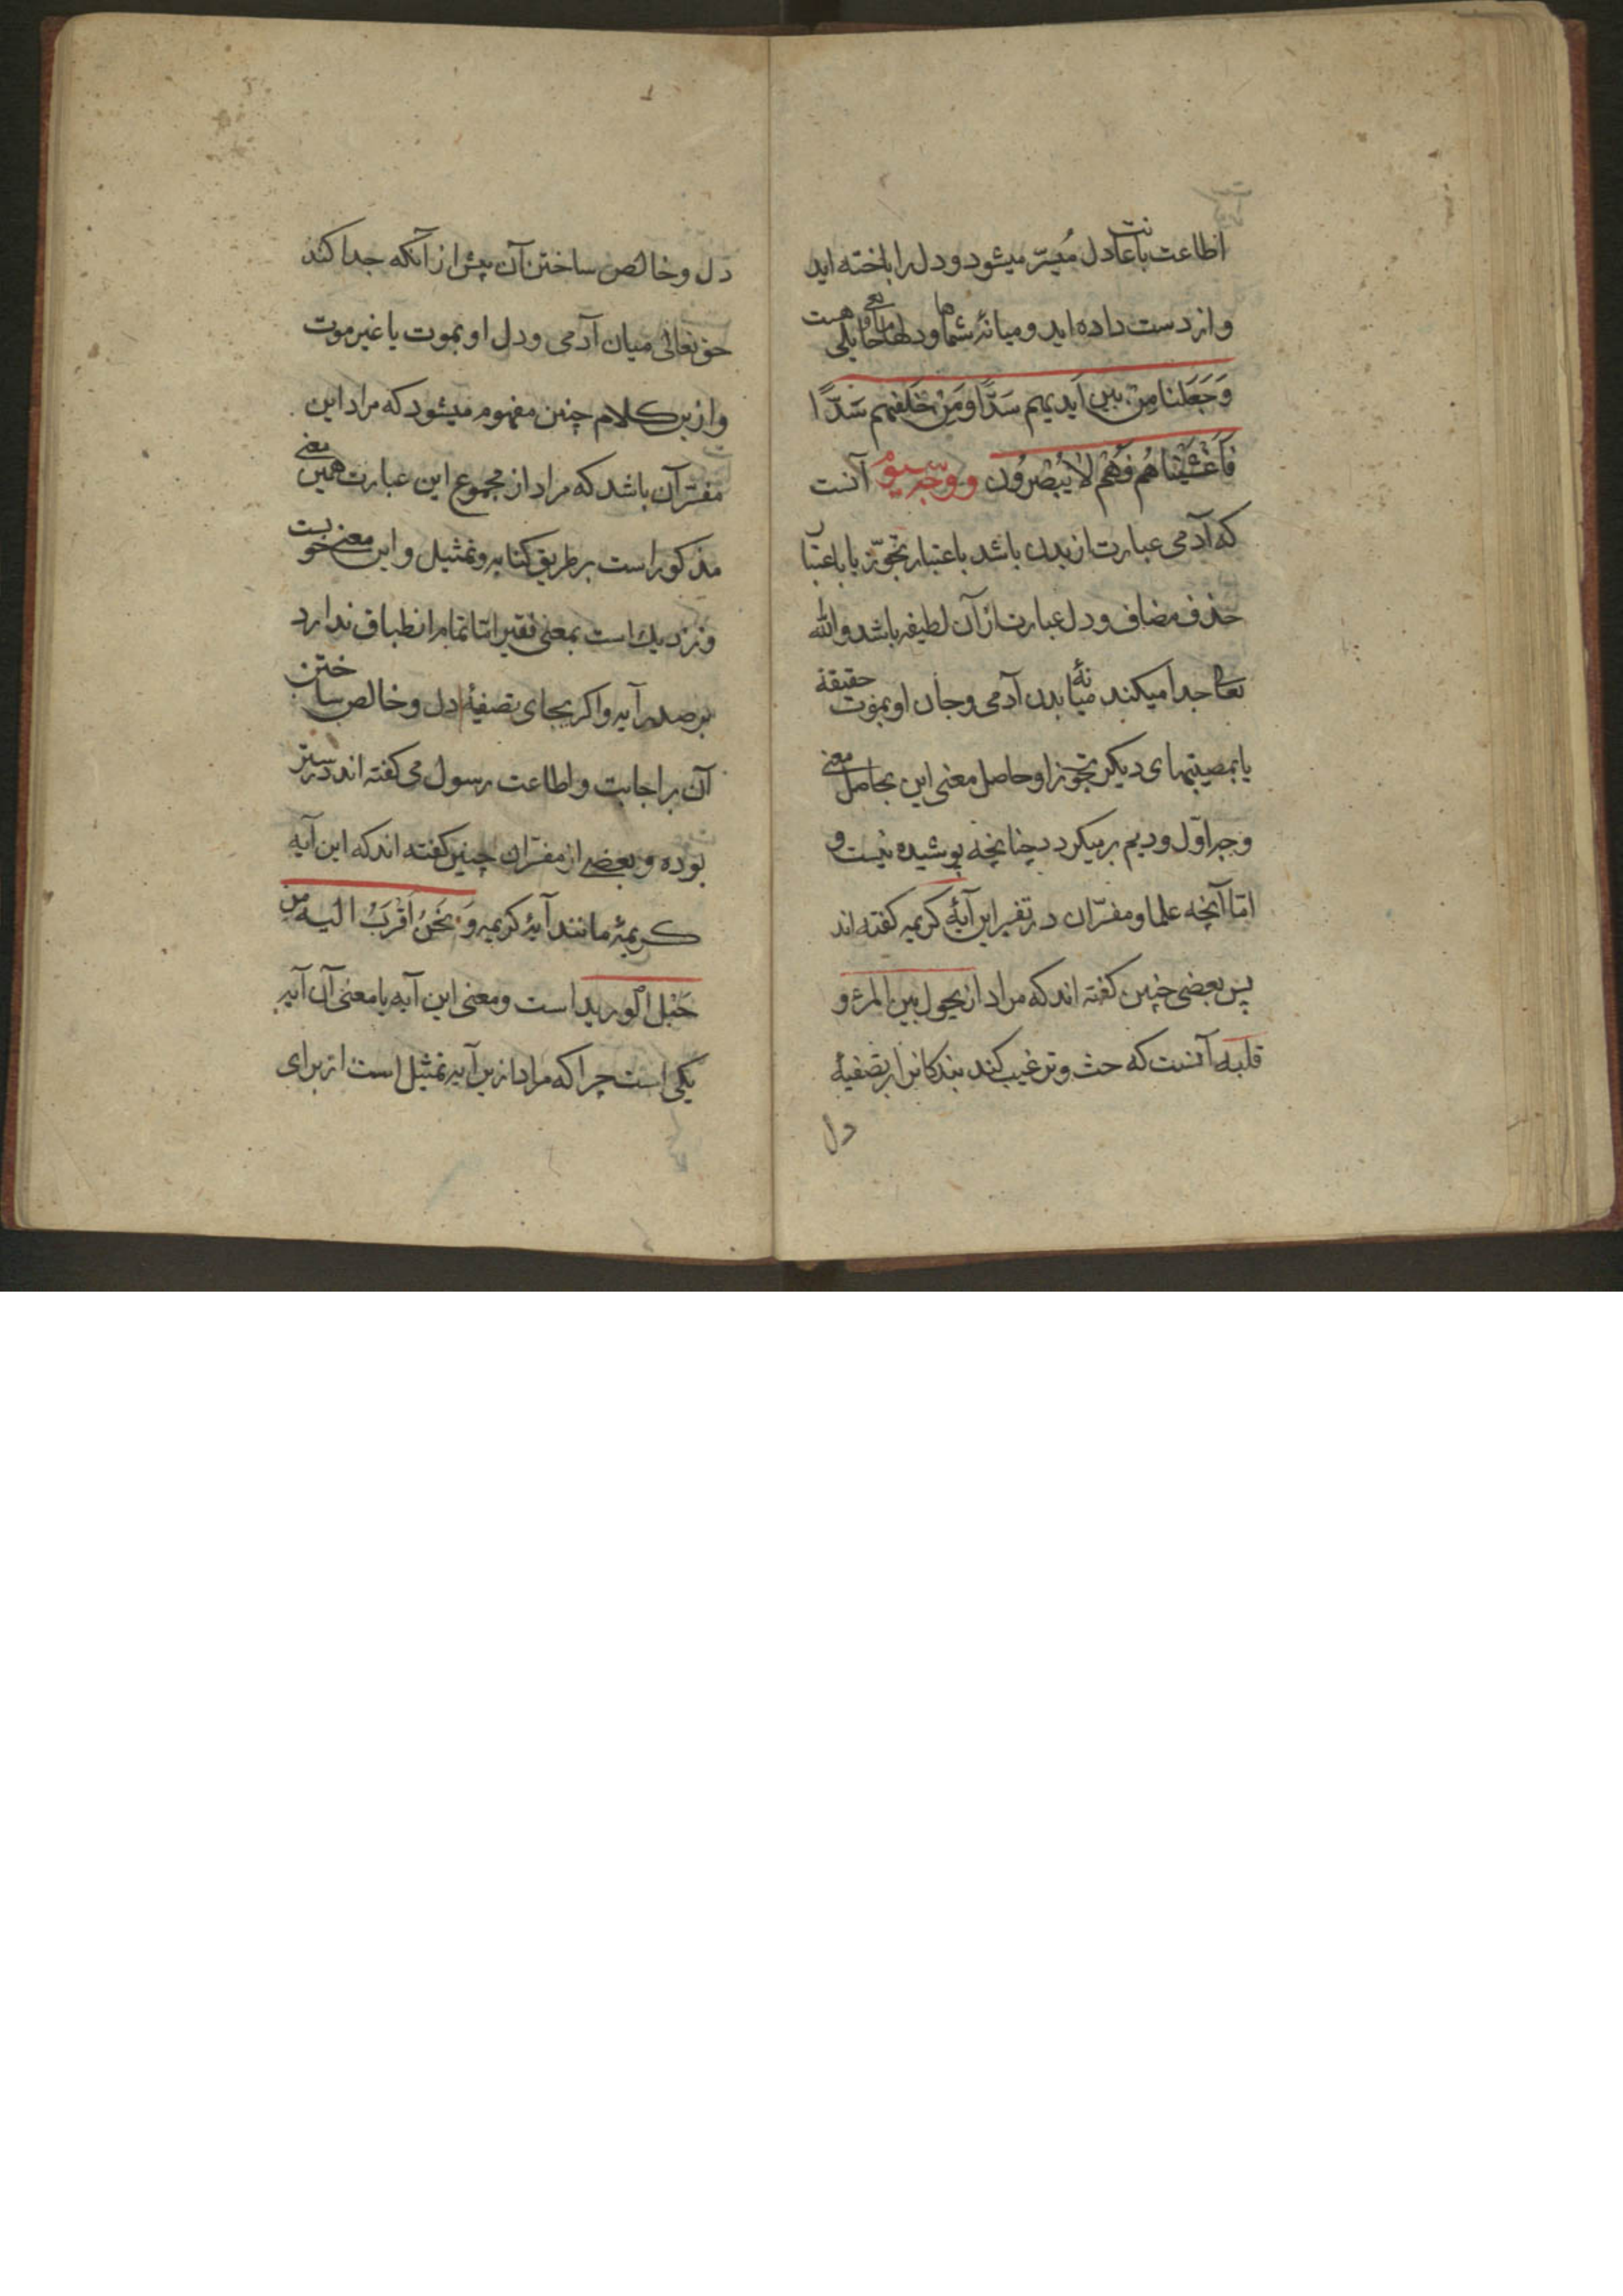 اطاعت باعانت دل میسّر میشود و دل را باخته اید
و از دست داده اید و میانهٔ شما و دلها مانعی و حایلی هست
وَجَعَلنا مِن بین اَیدیهم سَدًّا و مِن خَلفهم سَدًّا
فَاَغشَیناهُم فَهُم لا یُبصِرُون و وجه سیوم آنست
که آدمی عبارت از بدن باشد باعتبار تجوّز یا باعتبا
حذف مضاف و دل عبارت از آن لطیفه باشد و الله
تعالی جدا میکند میانهٔ بدن آدمی و جان او بموت حقیقة
یا بمصیبتهای دیکر تجوزا و حاصل معنی این بحاصل معنی
وجه اوّل و دیم بر میکردد چنانچه پوشیده نیست و
امّا آنچه علما و مفسّران در تفسیر این آیهٔ کریمه کفته اند
پس بعضی چنین کفته اند که مراد از یحول بین المرء و
قلبه آنست که حث و ترغیب کند بندکانرا بر تصفیهٔ
دل
دل و خالص ساختن آن پیش از آنکه جدا کند
حق تعالی میان آدمی و دل او بموت یا غیر موت
و ازین کلام چنین مفهوم میشود که مراد این
مفسّر آن باشد که مراد از مجموع این عبارت همین معنی
مذکور است بر طریق کنایه و تمثیل و این معنی خوبست
و نزدیک است بمعنی فقیر امّا تمام انطباق ندارد
بر صدر آیه و اکر بجای تصفیهٔ دل و خالص ساختن
آن بر اجابت و اطاعت رسول می کفته اند درستر
بوده و بعضی از مفسّران چنین کفته اند که این آیه
کریمهٔ مانند آیهٔ کریمه وَ نَحنُ اَقرَبُ الیه من
حَبْل الورید است و معنی این آیه با معنی آن آیه
یکی است چرا که مراد ازین آیه تمثیل است از برای